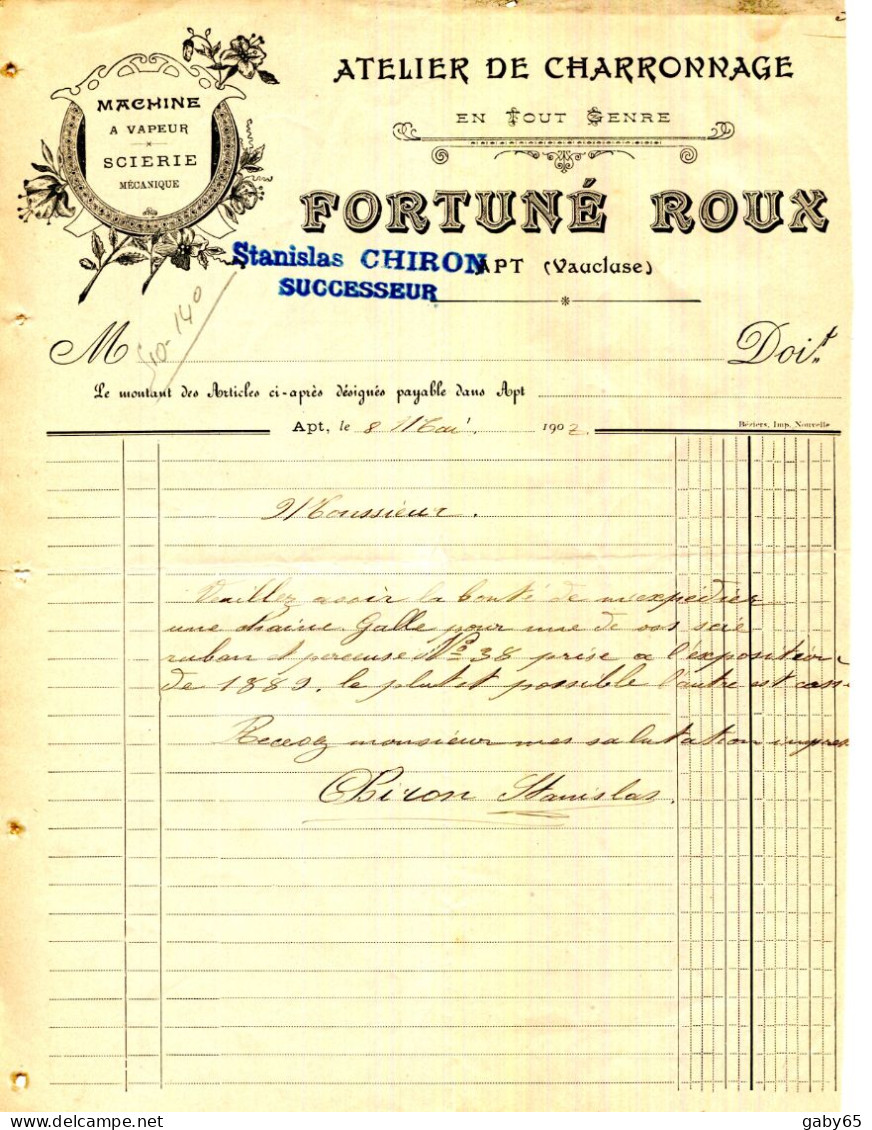 ATELIER DE CHARRONNAGE
EN TOUT GENRE
MACHINE
A VAPEUR
SCIERIE
MÉCANIQUE
FORTUNÉ ROUX
Stanislas CHIRON
SUCCESSEUR
APT (Vaucluse)
M Doit
Le montant des Articles ci-après désignés payable dans Apt
Apt, le 8 Mai 1902
Béziers, Imp. Nouvelle
Monssieur.
Veuillez avoir la bonté de m'expédier
une chaine Galle pour une de vos scie
ruban et perceuse No 38 prise a l'exposition
de 1889. le plutot possible l'autre est cass
Recevez monsieur mes salutation empres
Chiron Stanislas.
gaby65